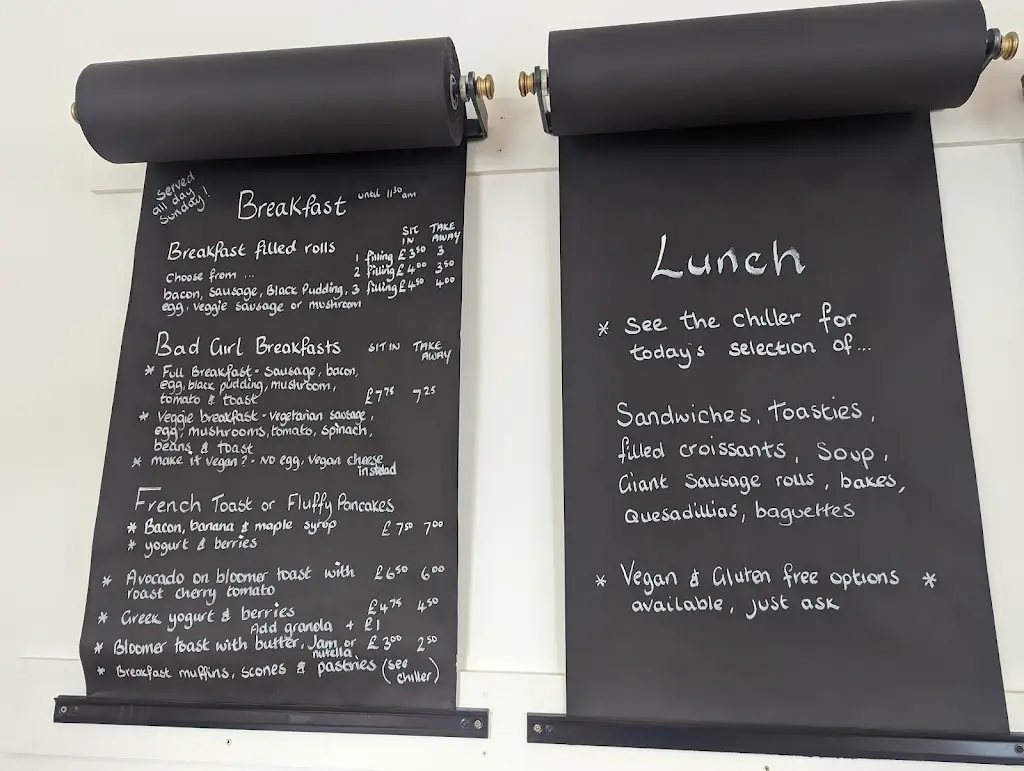 Served
all day
Sunday!
Breakfast until 11³⁰ am
SIT IN TAKE AWAY
Breakfast filled rolls 1 filling £3⁵⁰ 3
Choose from ... 2 filling £4⁰⁰ 3⁵⁰
bacon, sausage, Black Pudding, 3 filling £4⁵⁰ 4.00
egg, veggie sausage or mushroom
Bad Girl Breakfasts SIT IN TAKE AWAY
* Full Breakfast - sausage, bacon,
egg, black pudding, mushroom,
tomato & toast £7⁷⁵ 7²⁵
* Veggie breakfast - vegetarian sausage,
egg, mushrooms, tomato, spinach,
beans & toast
* make it vegan? - NO egg, vegan cheese
instead
French Toast or Fluffy Pancakes
* Bacon, banana & maple syrup £7⁵⁰ 7⁰⁰
* yogurt & berries
* Avocado on bloomer toast with £6⁵⁰ 6⁰⁰
roast cherry tomato
* Greek yogurt & berries £4⁷⁵ 4⁵⁰
Add granola + £1
* Bloomer toast with butter, Jam or £3⁰⁰ 2⁵⁰
nutella
* Breakfast muffins, scones & pastries (see
chiller)
Lunch
* See the chiller for
today's selection of...
Sandwiches, Toasties,
filled croissants, Soup,
Giant Sausage rolls, bakes,
Quesadillias, baguettes
* Vegan & Gluten free options *
available, just ask